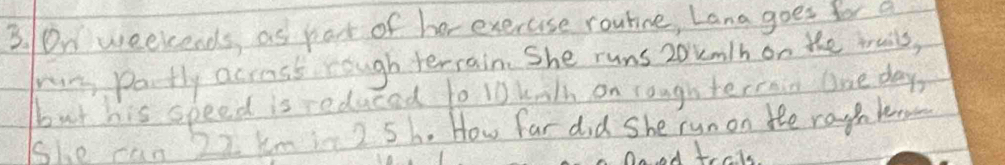 3. On weekends, as part of her exercise routine, Lana goes for a
run, partly across rough terrain. She runs 20 km/h on the trails,
but his speed is reduced to 10 km/h on rough terrain One day,
She ran 22 km in 2 5 h. How far did she run on the rough terrain
trails